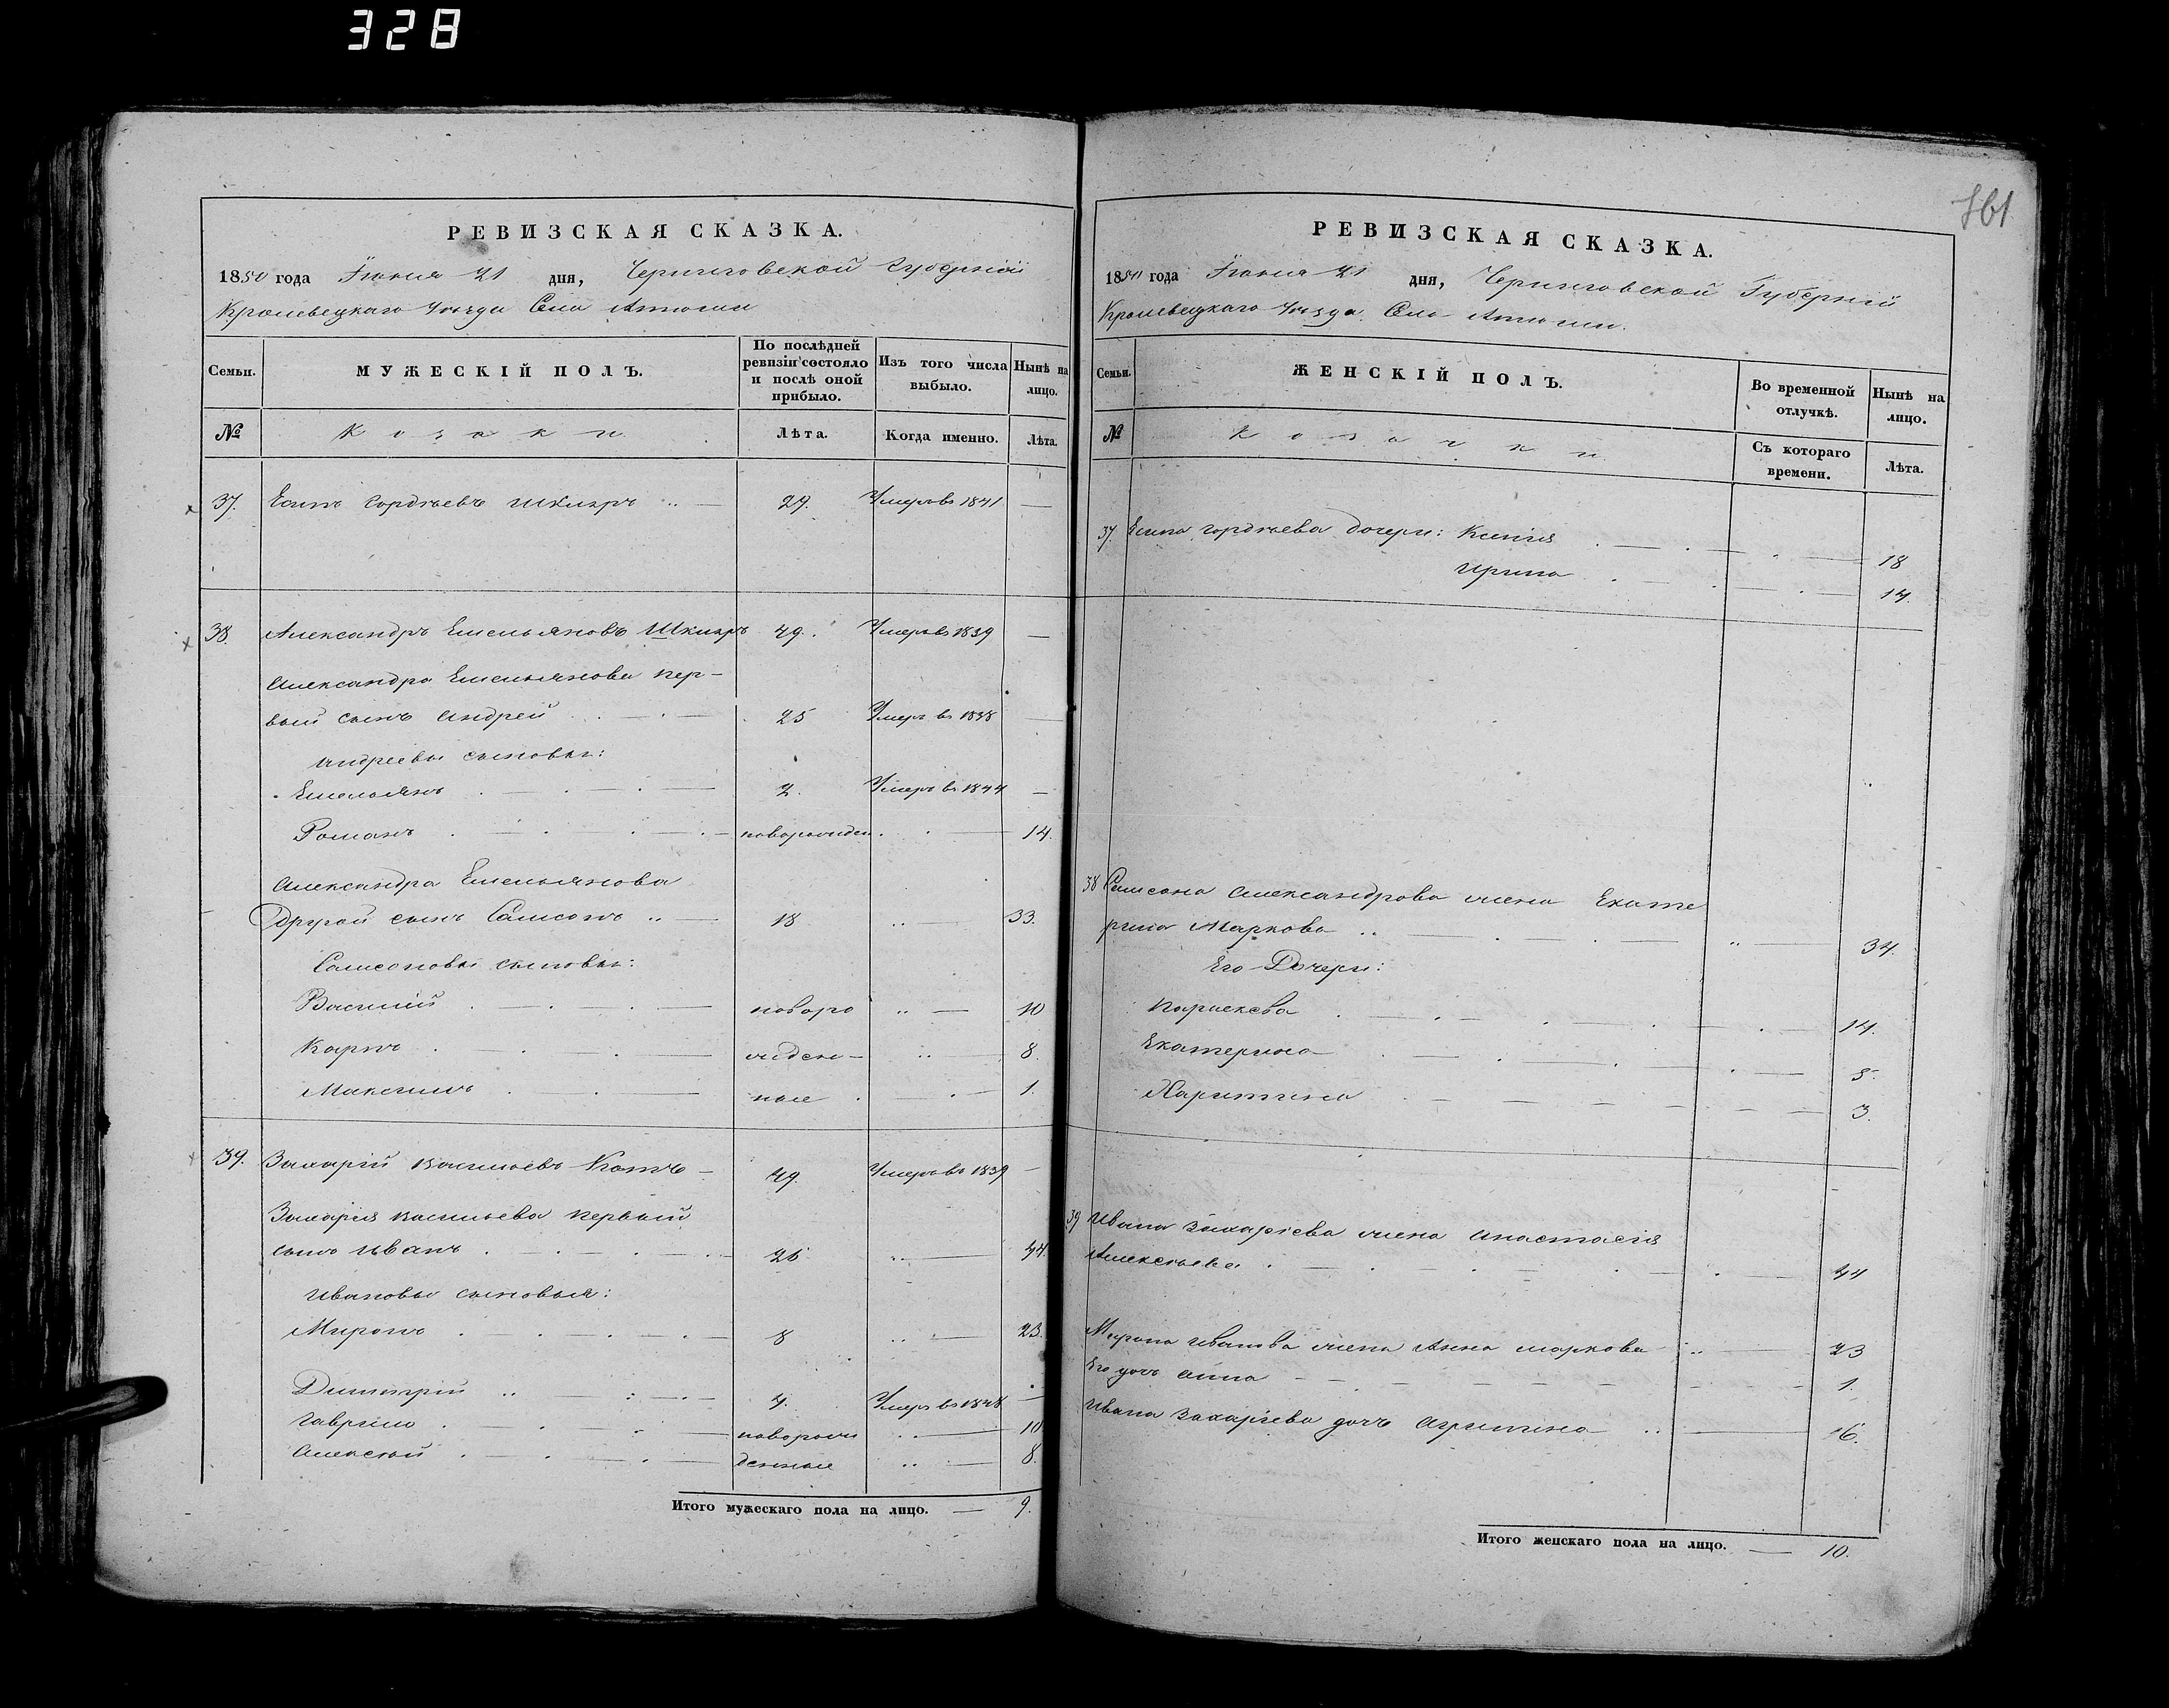 328
361
РЕВИЗСКАЯ СКАЗКА.
1850 года Іюня 21 дня, Черниговской Губерніи
Кролевецкаго Уѣзда Села
Семьи. МУЖЕСКІЙ ПОЛЪ. По послѣдней ревизіи состояло и послѣ оной прибыло. Изъ того числа выбыло. Нынѣ на лицо.
№ Козаки Лѣта. Когда именно. Лѣта.
37. Есипъ Гордѣевъ Шкляръ 29. Умеръ въ 1841 —
38 Александръ Емельяновъ Шкляръ 49. Умеръ въ 1839 —
Александра Емельянова пер-
вый сынъ Андрей 25 Умеръ въ 1838 —
Андреевы сыновья:
Емельянъ 2. Умеръ въ 1844 —
Романъ новорожден. 14.
Александра Емельянова
Другой сынъ Самсонъ 18 33.
Самсоновы сыновья:
Василій новоро 10
Карпъ жден- 8.
Максимъ ные 1.
39. Захарій Васильевъ Котъ 49. Умеръ въ 1839 —
Захарія Васильева первый
сынъ Иванъ 26 44.
Ивановы сыновья:
Миронъ 8 23.
Димитрій 4. Умеръ въ 1848 —
Гаврило новорож 10
Алексѣй денные 8.
Итого мужескаго пола на лицо. — 9.
РЕВИЗСКАЯ СКАЗКА.
1850 года Іюня 21 дня, Черниговской Губерніи
Кролевецкаго Уѣзда Села
Семьи. ЖЕНСКІЙ ПОЛЪ. Во временной отлучкѣ. Нынѣ на лицо.
№ Козачки Съ котораго времени. Лѣта.
37. Есипа Гордѣева дочери: Ксенія 18
Ирина 14.
38 Самсона Александрова жена Екате
рина Маркова 34.
Его Дочери:
Параскева 14.
Екатерина 5.
Харитина 3.
39 Ивана Захаріева жена Анастасія
Алексѣева 44
Мирона Иванова жена Анна Маркова 23
Его дочь Анна 1.
Ивана Захаріева дочь Агрипина 16.
Итого женскаго пола на лицо. — 10.